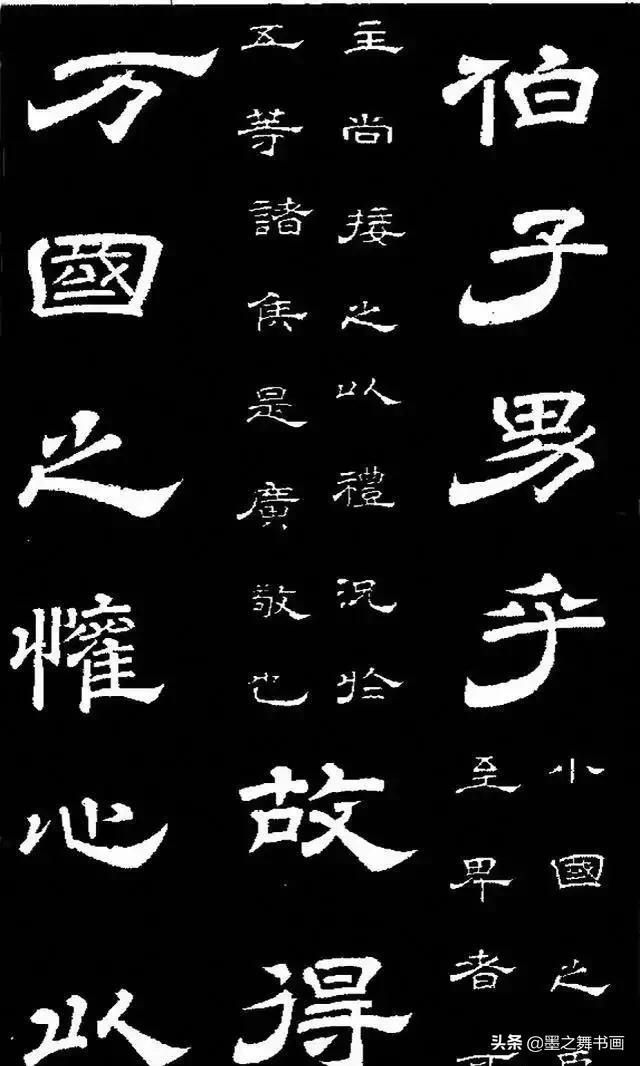 伯子男乎
小國之
至卑者
主尚接之以禮況於
五等諸侯是廣敬也
故得
万國之懽心以
头条 @墨之舞书画